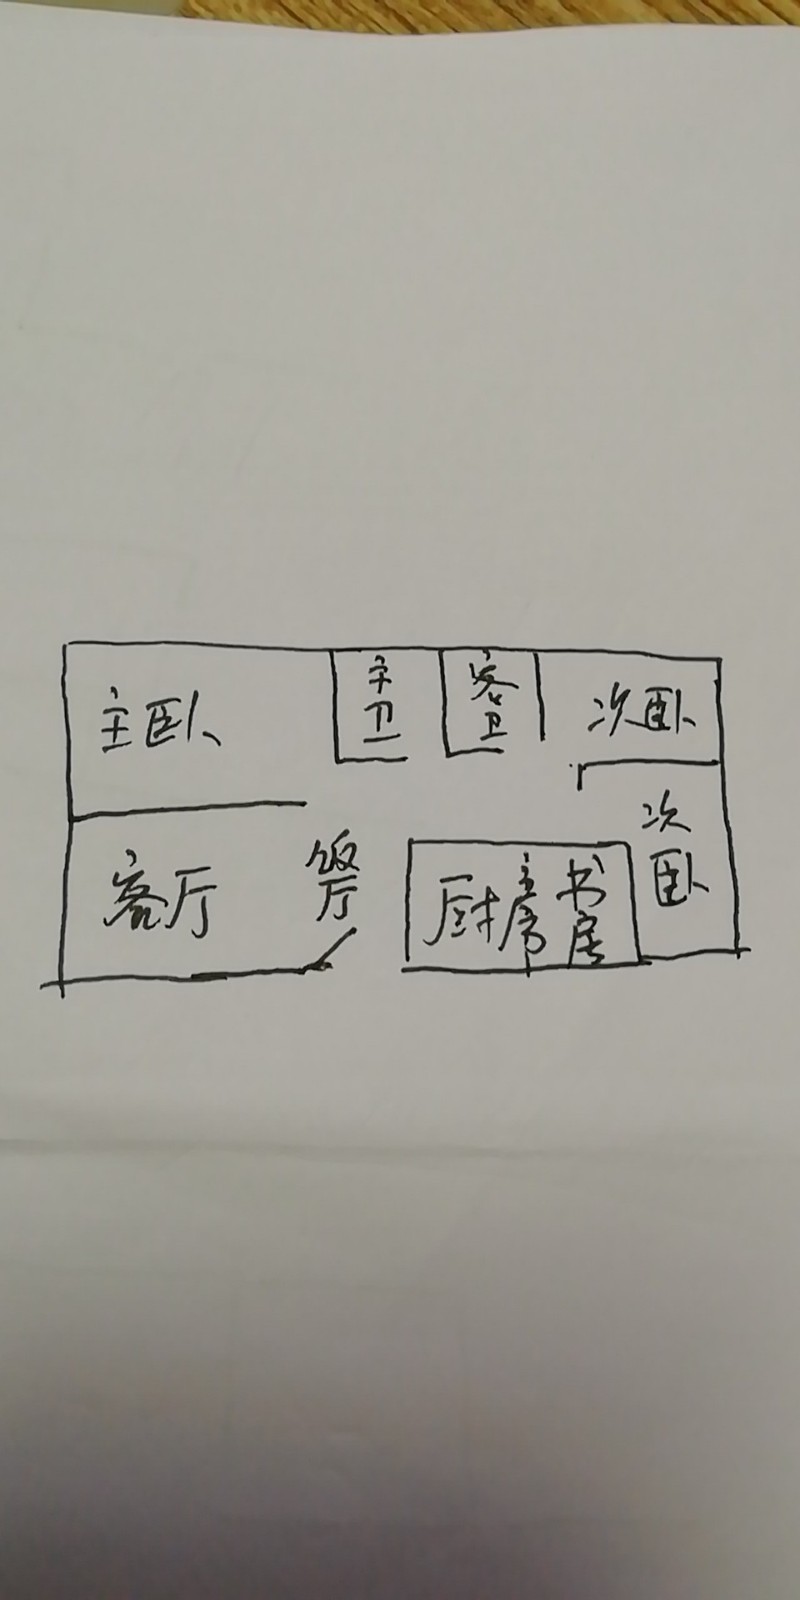 主卧
主卫
客卫
次卧
次卧
客厅
饭厅
厨房
书房